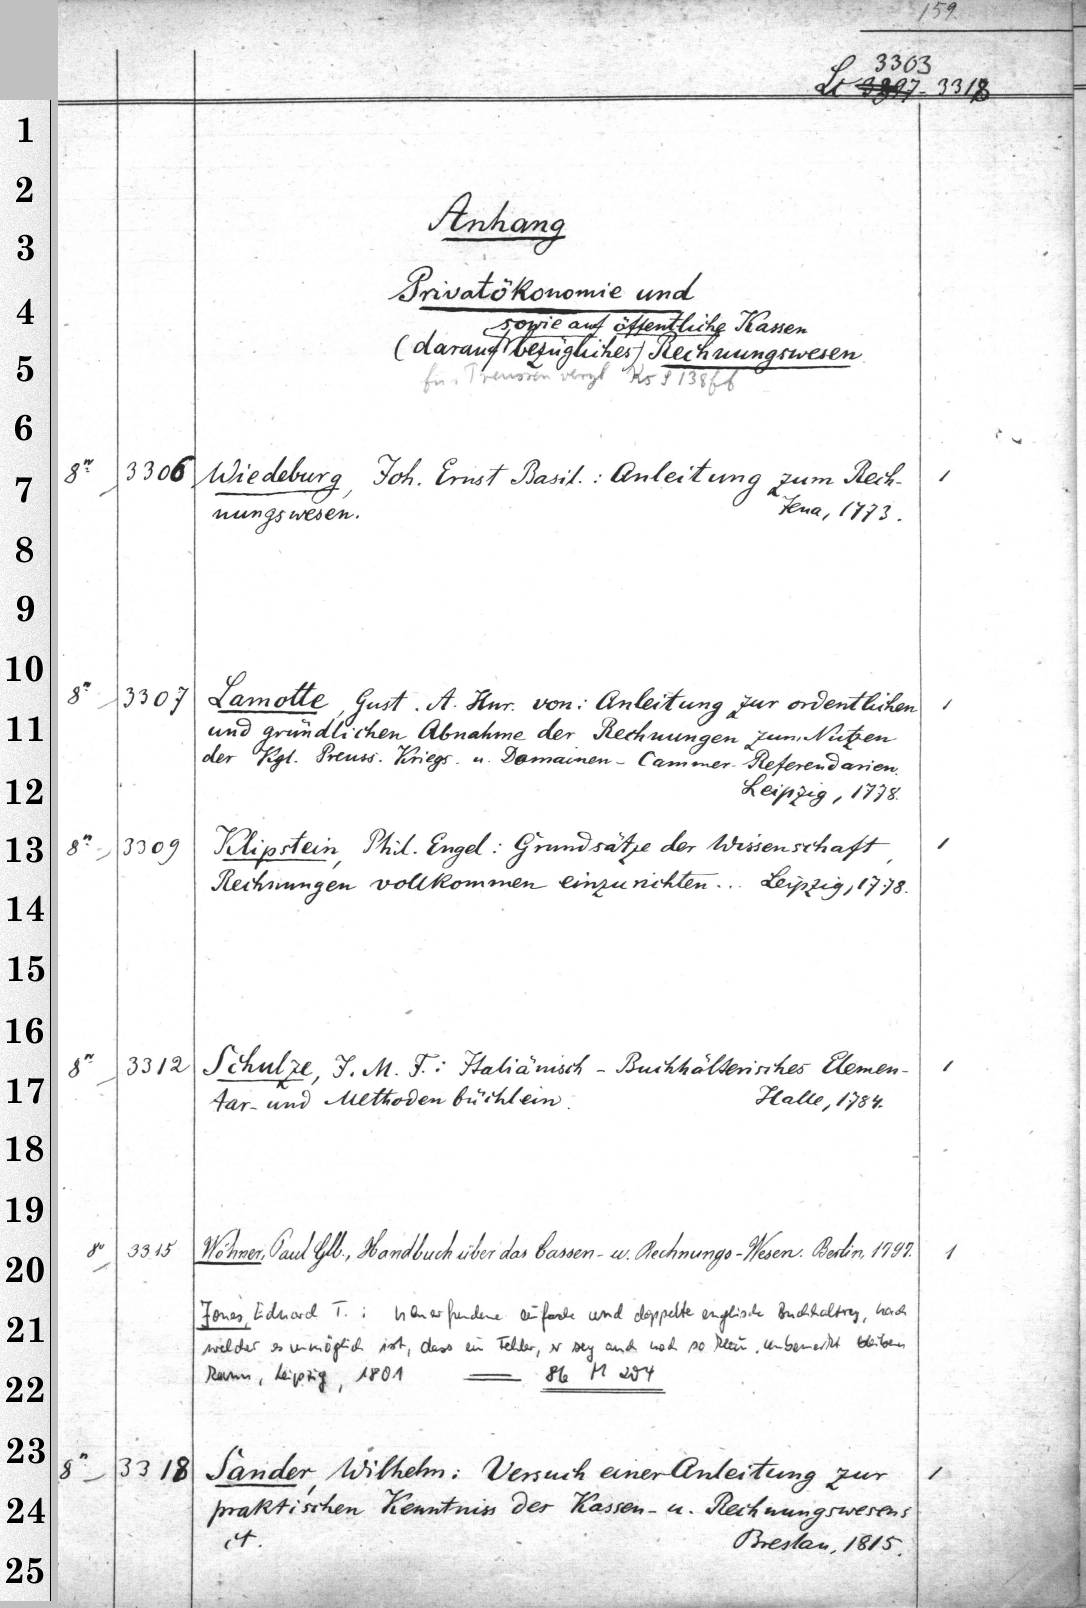 159.
3303
Lt 3307 - 3318
Anhang
Privatökonomie und
sowie auf öffentliche Kassen
(darauf bezügliches) Rechnungswesen
für Preussen vergl Ks S 138ff
8° 3306 Wiedeburg, Joh. Ernst Basil.: Anleitung zum Rech- 1
nungswesen. Jena, 1773.
8° 3307 Lamotte, Gust. A. Hnr. von: Anleitung zur ordentlichen 1
und gründlichen Abnahme der Rechnungen zum Nutzen
der Kgl. Preuss. Kriegs- u. Domainen-Cammer-Referendarien.
Leipzig, 1778.
8° 3309 Klipstein, Phil. Engel: Grundsätze der Wissenschaft, 1
Rechnungen vollkommen einzurichten... Leipzig, 1778.
8° 3312 Schulze, J. M. F.: Italiänisch-Buchhälterisches Elemen- 1
tar- und Methodenbüchlein. Halle, 1784.
8° 3315 Wöhner, Paul Glb., Handbuch über das Cassen- u. Rechnungs-Wesen. Berlin, 1797. 1
Jones, Eduard T.: Neuerfundene einfache und doppelte englische Buchhaltung, nach
welcher es unmöglich ist, dass ein Fehler, er sey auch noch so klein, unbemerkt bleiben
kann, Leipzig, 1801 — 86 M 204
8° 3318 Sander, Wilhelm: Versuch einer Anleitung zur 1
praktischen Kenntniss des Kassen- u. Rechnungswesens
ct. Breslau, 1815.
1
2
3
4
5
6
7
8
9
10
11
12
13
14
15
16
17
18
19
20
21
22
23
24
25